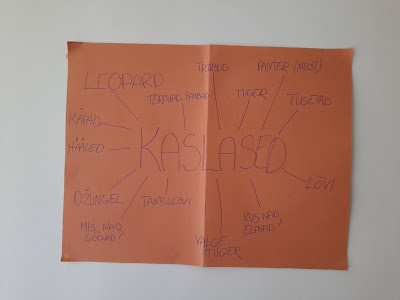 TRIIBUD
PANTER (MUST)
LEOPARD
TERAVAD HAMBAD
TIIGER
TUGEVAD
KÄPAD
HÄÄLED
KASLASED
LÕVI
DŽUNGEL
TANBULÕVI
MIS NAD
SÖÖVAD
KUS NAD
ELAVAD
VALGE
TIIGER